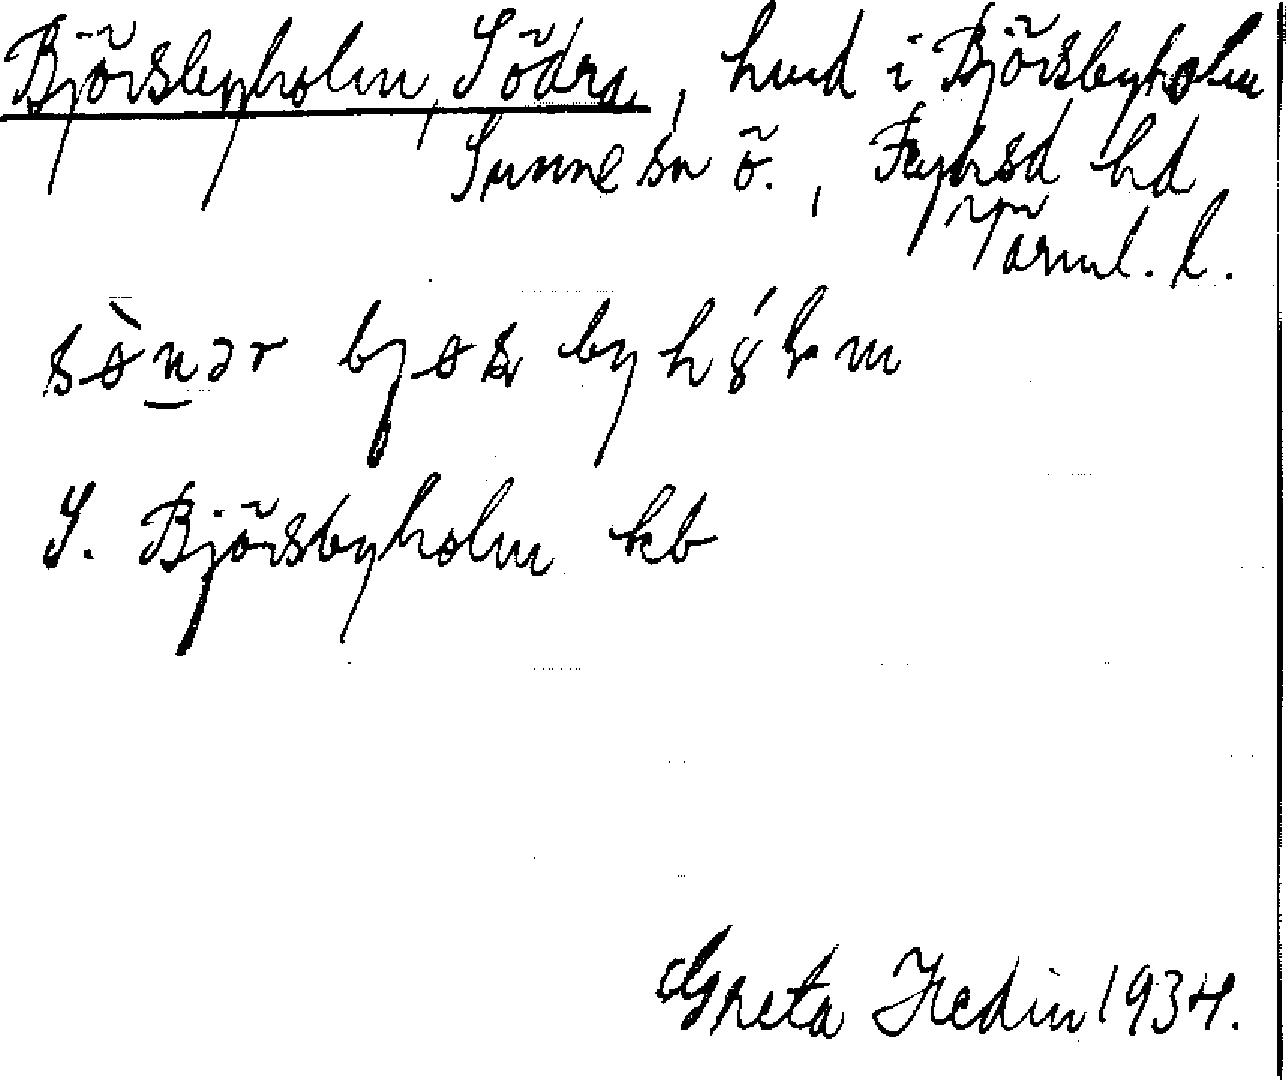 Björsbyholm, Södra, hmd i Björsbyholm
Sunne sn ö., Fryksd hd
Värml. l.
S. Björsbyholm kb
Greta Hedin 1934.